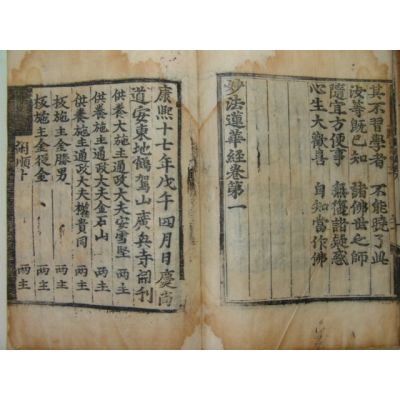 其不習學者 不能曉了此
汝等既已知 諸佛世之師
隨宜方便事 無復諸疑惑
心生大歡喜 自知當作佛
妙法蓮華經卷第一
康熙十七年戊午四月日慶尚
道安東地鶴駕山廣興寺開刊
供養大施主通政大夫安雪堅 兩主
供養施主通政大夫金石山 兩主
供養施主通政大夫權貴同 兩主
板施主金勝男 兩主
板施主金従金 兩主
順卜 兩主